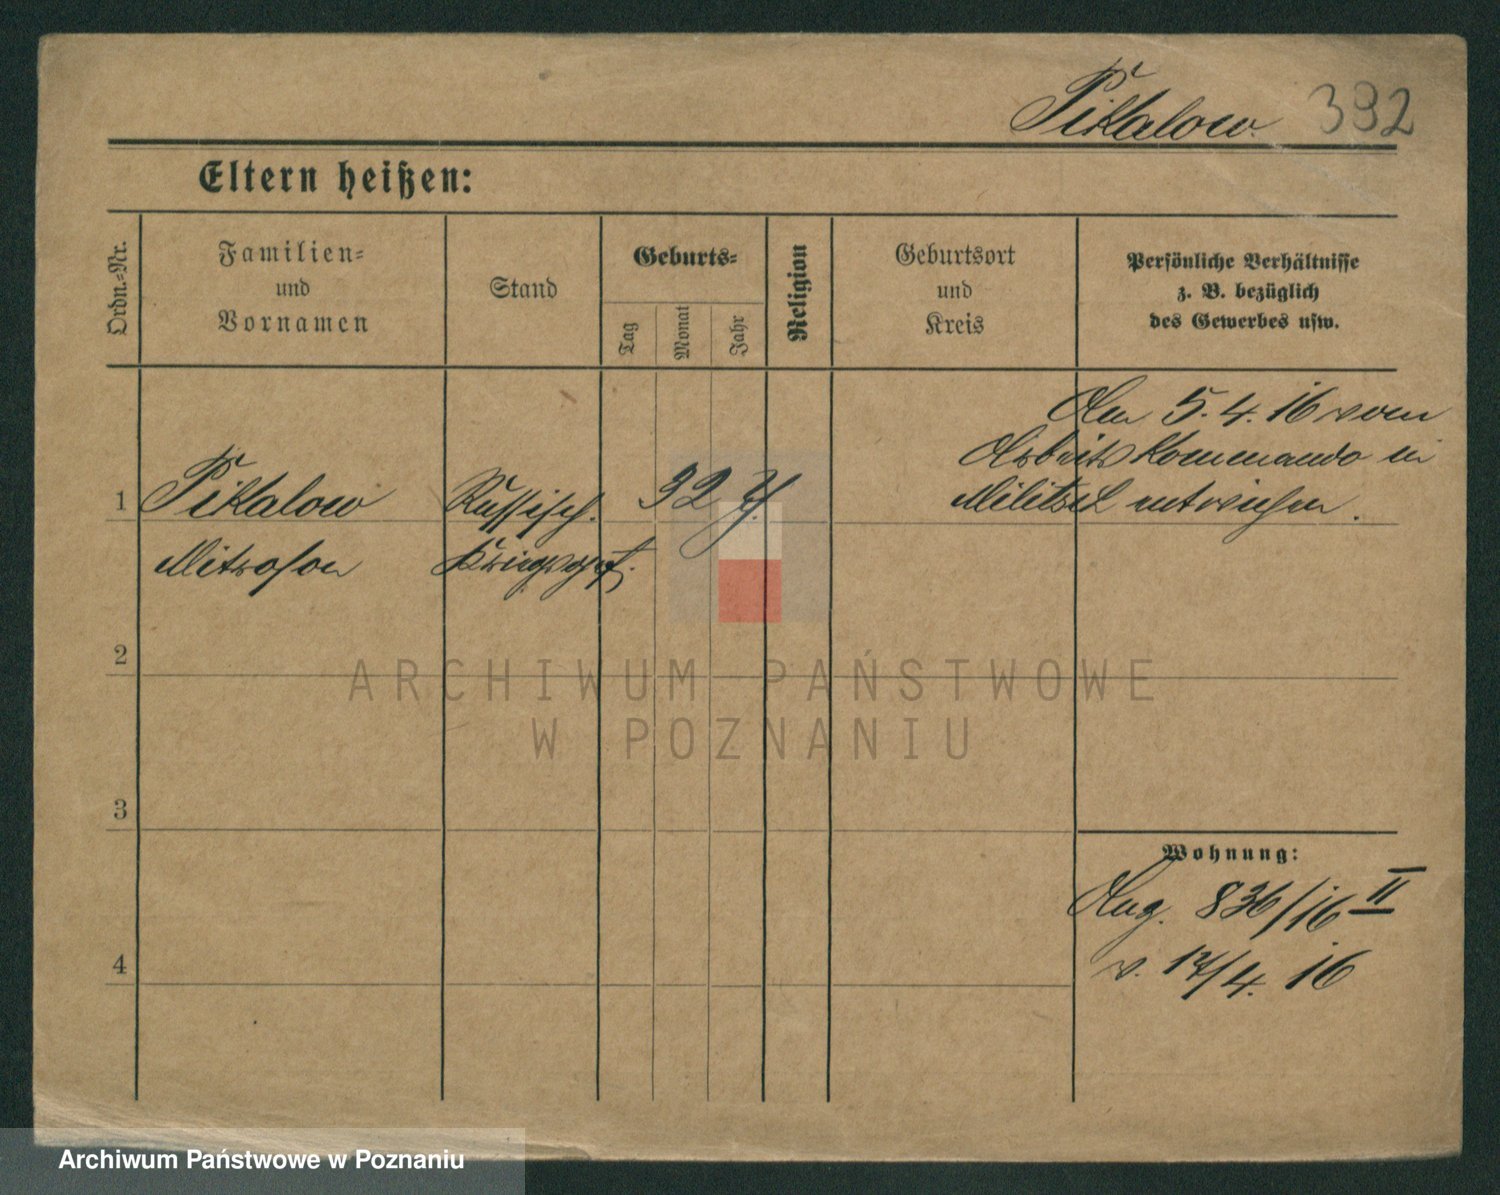 Pikalow. 392
Eltern heißen:
Ordn.-Nr.
Familien-
und
Vornamen
Stand
Geburts-
Tag
Monat
Jahr
Religion
Geburtsort
und
Kreis
Persönliche Verhältnisse
z. B. bezüglich
des Gewerbes usw.
Am 5. 4. 16 vom
Arbeitskommando in
Militsch entwichen.
1 Pikalow Russisch. 32 J.
Mitrofon Kriegsgef.
2
3
4
Wohnung:
Ang. 836/16 II
v. 17/4. 16
ARCHIWUM PAŃSTWOWE
W POZNANIU
Archiwum Państwowe w Poznaniu